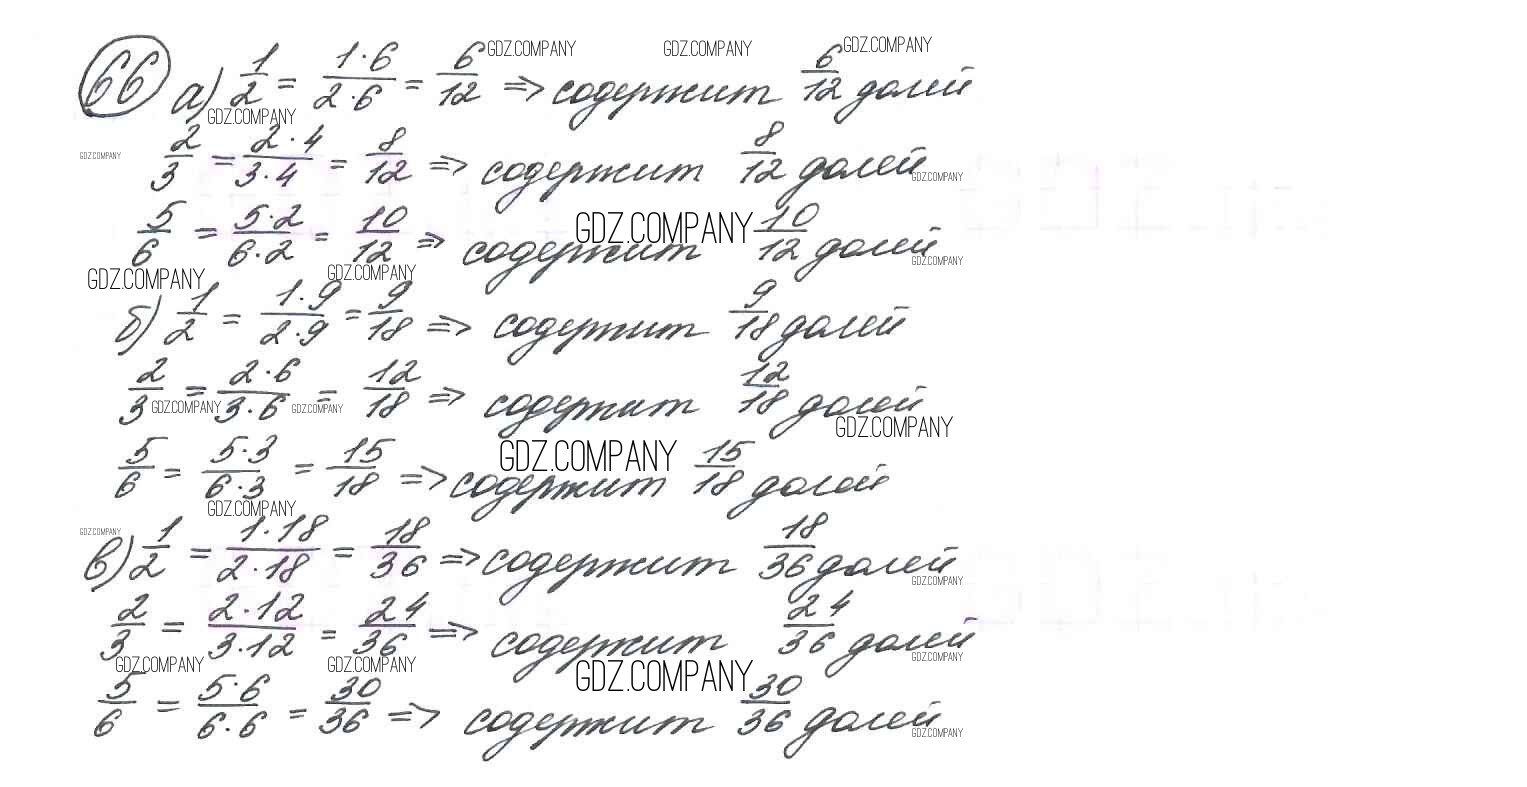 66 а) 1/2 = 1·6/2·6 = 6/12 => содержит 6/12 долей
2/3 = 2·4/3·4 = 8/12 => содержит 8/12 долей
5/6 = 5·2/6·2 = 10/12 => содержит 10/12 долей
б) 1/2 = 1·9/2·9 = 9/18 => содержит 9/18 долей
2/3 = 2·6/3·6 = 12/18 => содержит 12/18 долей
5/6 = 5·3/6·3 = 15/18 => содержит 15/18 долей
в) 1/2 = 1·18/2·18 = 18/36 => содержит 18/36 долей
2/3 = 2·12/3·12 = 24/36 => содержит 24/36 долей
5/6 = 5·6/6·6 = 30/36 => содержит 30/36 долей
GDZ.COMPANY